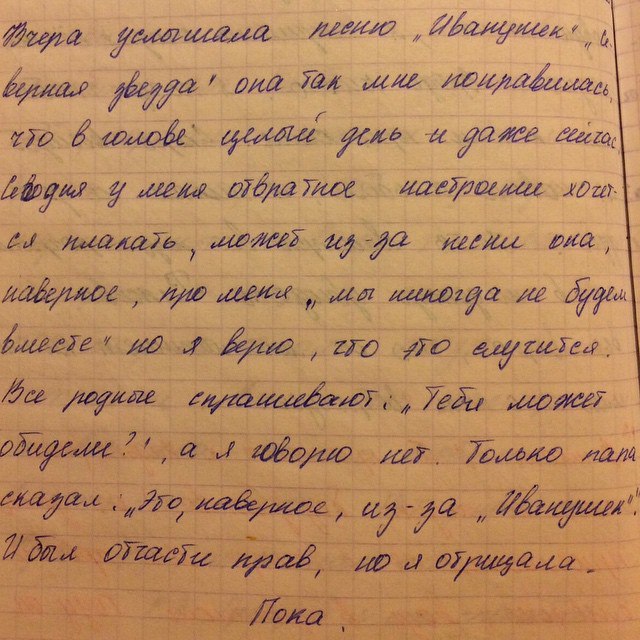 Вчера услышала песню „Иванушек" „Се
верная звезда" она так мне понравилась,
что в голове целый день и даже сейчас.
Сегодня у меня отвратное настроение хочет-
ся плакать, может из-за песни она,
наверное, про меня „мы никогда не будем
вместе" но я верю, что это случится.
Все родные спрашивают: „Тебя может
обидели?", а я говорю нет. Только папа
сказал: „Это, наверное, из-за „Иванушек"".
И был отчасти прав, но я отрицала.
Пока.